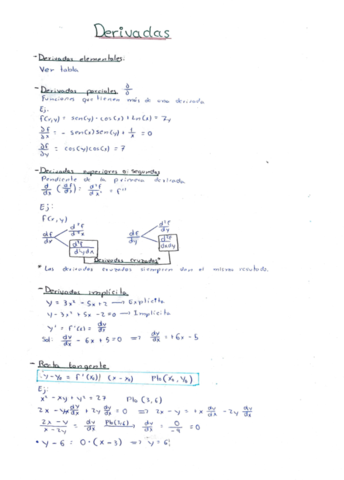 Derivadas
- Derivadas elementales:
Ver tabla
- Derivadas parciales ∂/∂
Funciones que tienen más de una derivada
Ej:
f(x,y) = sen(y) · cos(x) + ln(x) = 7y
∂f/∂x = - sen(x) sen(y) + 1/x = 0
∂f/∂y = cos(y) cos(x) = 7
- Derivadas superiores o segundas
Pendiente de la primera derivada
d/dx (df/dx) = d²f/dx² = f''
Ej:
f(x,y)
df/dx d²f/dx² d²f/dydx df/dy d²f/dy d²f/dxdy
Derivadas cruzadas
* Las derivadas cruzadas siempre dan el mismo resultado.
- Derivadas implícita
y = 3x² - 5x + 2 → Explícita
y - 3x² + 5x - 2 = 0 → Implícita
y' = f'(x) = dy/dx
Sol: dy/dx - 6x + 5 = 0 ⇒ dy/dx = +6x - 5
- Recta tangente
y - y₀ = f'(x₀) (x - x₀) Pto (x₀, y₀)
Ej:
x² - xy + y² = 27 Pto (3,6)
2x - y - x dy/dx + 2y dy/dx = 0 ⇒ 2x - y = +x dy/dx - 2y dy/dx
2x - y / x - 2y = dy/dx Pto(3,6) dy/dx = 0/-9 = 0
· y - 6 = 0 · (x - 3) ⇒ y = 6